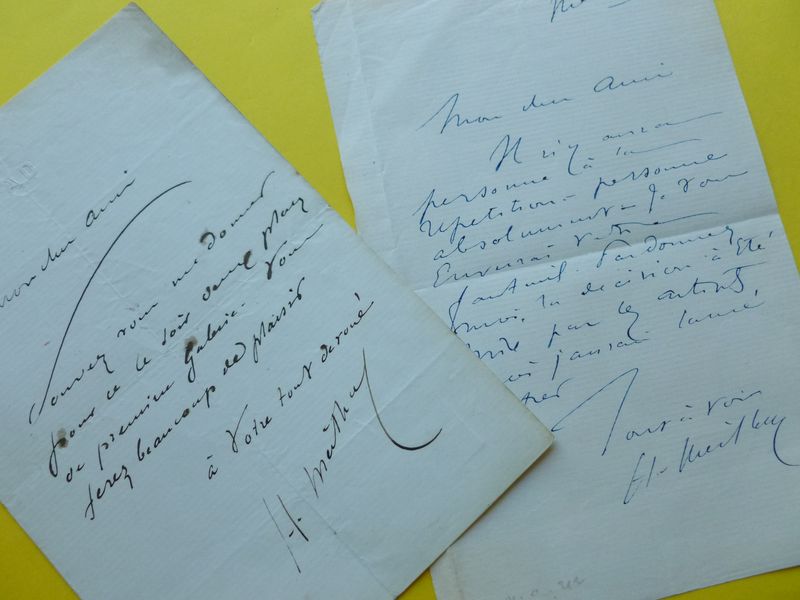 mon cher ami
Pouvez vous me donner
pour ce soir deux places
de première Galerie. Vous
ferez beaucoup de plaisir
à Votre tout dévoué
H. Meilhac
Mon cher ami
Il n'y aura
personne à la
répétition - personne
absolument - Je vous
Enverrai votre
fauteuil. Pardonnez
moi, la décision a été
prise par les artistes,
j'aurais
Tout à vous
H. Meilhac